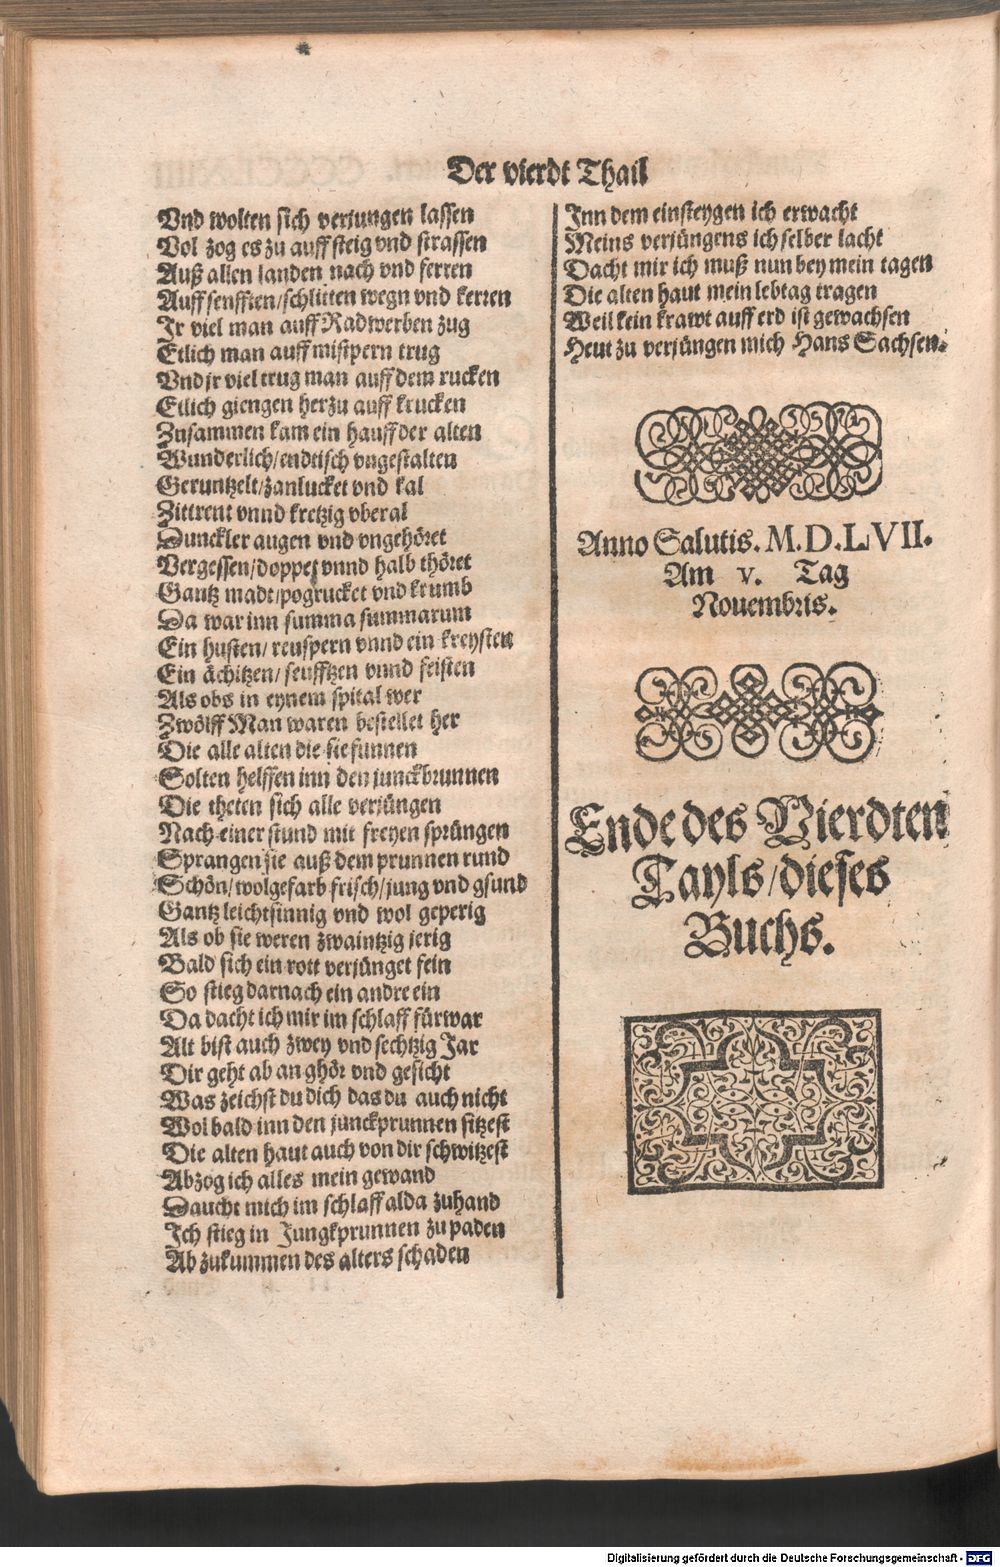 Der vierdt Thail
Vnd wolten sich verjungen lassen
Vol zog es zu auff steig vnd strassen
Auß allen landen nach vnd ferren
Auff senfften/schlitten wegn vnd kerren
Jr viel man auff Radwerben zug
Etlich man auff mistpern trug
Vnd jr viel trug man auff dem rucken
Etlich giengen herzu auff krucken
Zusammen kam ein hauff der alten
Wunderlich/endtisch vngestalten
Geruntzelt/zanlucket vnd kal
Zittrent vnnd kretzig vberal
Dunckler augen vnd vngehöret
Vergessen/doppet vnnd halb thöret
Gantz madt/pogrucket vnd krumb
Da war inn summa summarum
Ein husten/reuspern vnnd ein kreysten
Ein ächitzen/seufftzen vnnd feisten
Als obs in eynem spital wer
Zwölff Man waren bestellet her
Die alle alten die sie funnen
Solten helffen inn den junckbrunnen
Die theten sich alle verjüngen
Nach einer stund mit freyen sprüngen
Sprangen sie auß dem prunnen rund
Schön/wolgefarb frisch/jung vnd gsund
Gantz leichtsinnig vnd wol geperig
Als ob sie weren zwaintzig jerig
Bald sich ein rott verjünget fein
So stieg darnach ein andre ein
Da dacht ich mir im schlaff fürwar
Alt bist auch zwey vnd sechtzig Jar
Dir geht ab an ghör vnd gesicht
Was zeichst du dich das du auch nicht
Wol bald inn den junckprunnen sitzest
Die alten haut auch von dir schwitzest
Abzog ich alles mein gewand
Daucht mich im schlaff alda zuhand
Jch stieg in Jungkprunnen zu paden
Ab zukummen des alters schaden
Jnn dem einsteygen ich erwacht
Meins verjüngens ich selber lacht
Dacht mir ich muß nun bey mein tagen
Die alten haut mein lebtag tragen
Weil kein krawt auff erd ist gewachsen
Heut zu verjüngen mich Hans Sachsen.
Anno Salutis. M.D.LVII.
Am v. Tag
Nouembris.
Ende des Vierdten
Tayls/dieses
Buchs.
Digitalisierung gefördert durch die Deutsche Forschungsgemeinschaft - DFG